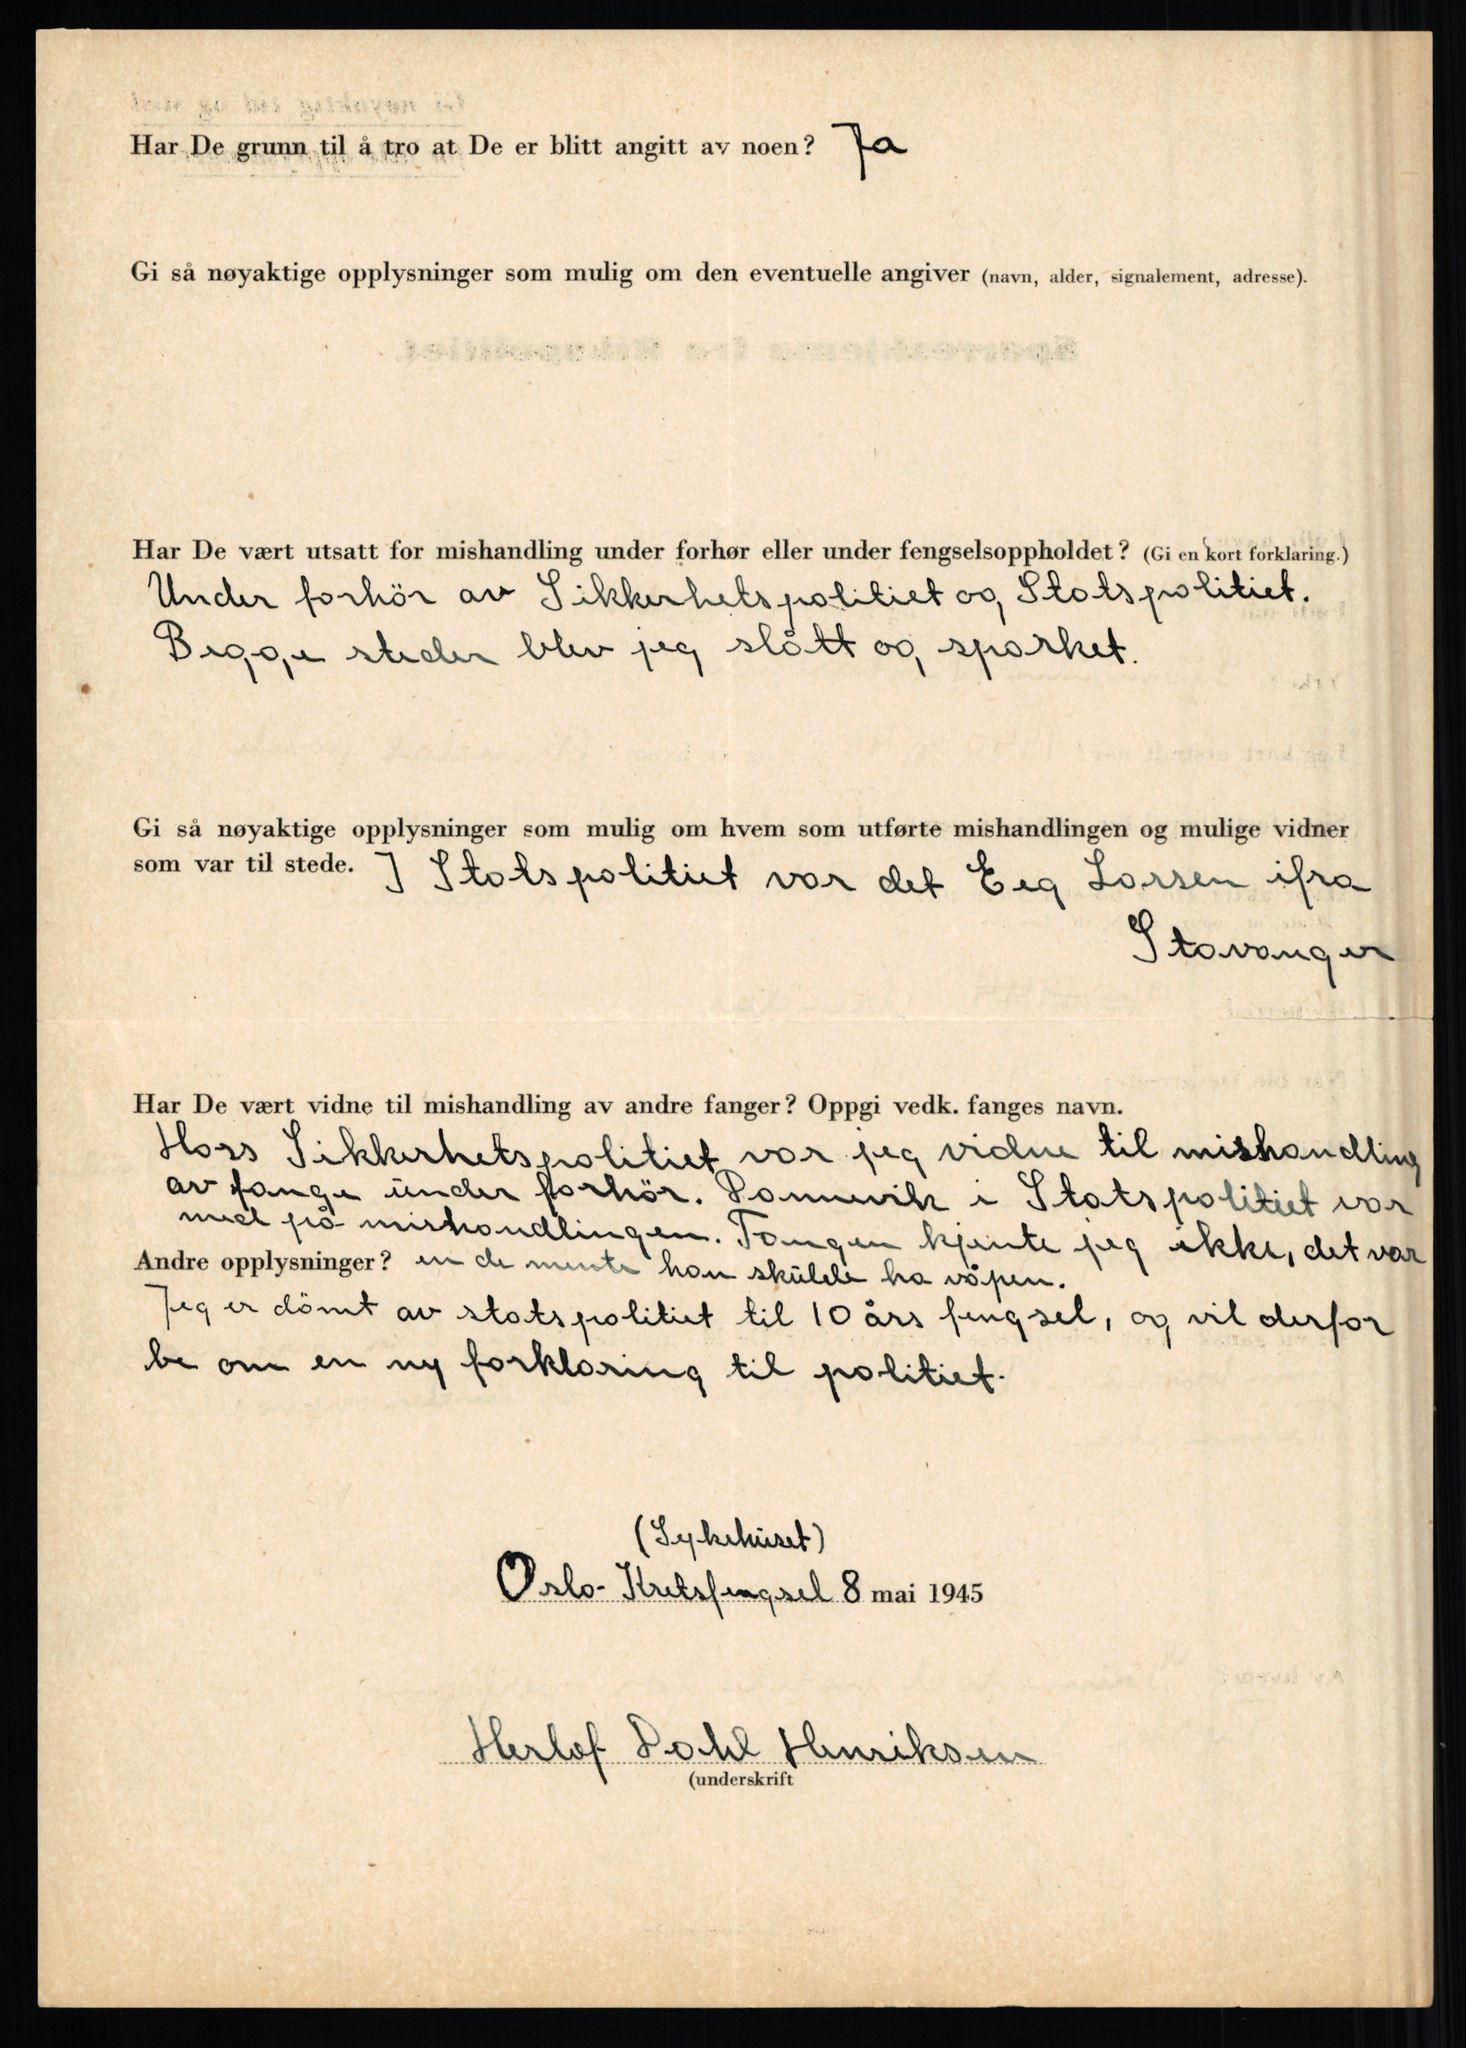 Har De grunn til å tro at De er blitt angitt av noen? Ja
Gi så nøyaktige opplysninger som mulig om den eventuelle angiver (navn, alder, signalement, adresse).
Har De vært utsatt for mishandling under forhør eller under fengselsoppholdet? (Gi en kort forklaring.)
Under forhör av Sikkerhetspolitiet og Statspolitiet.
Begge steder blev jeg slått og sparket.
Gi så nøyaktige opplysninger som mulig om hvem som utførte mishandlingen og mulige vidner
som var til stede. I Statspolitiet var det Eeg Larsen ifra
Stavanger
Har De vært vidne til mishandling av andre fanger? Oppgi vedk. fanges navn.
Hoss Sikkerhetspolitiet var jeg vidne til mishandling
av fange under forhör. Dannevik i Statspolitiet var
med på mishandlingen. Fangen kjente jeg ikke, det var
Andre opplysninger? en de mente han skulde ha våpen.
Jeg er dömt av statspolitiet til 10 års fengsel, og vil derfor
be om en ny forklaring til politiet.
(Sykehuset)
Oslo-Kretsfengsel 8 mai 1945
Herlof Dahl Henriksen
(underskrift